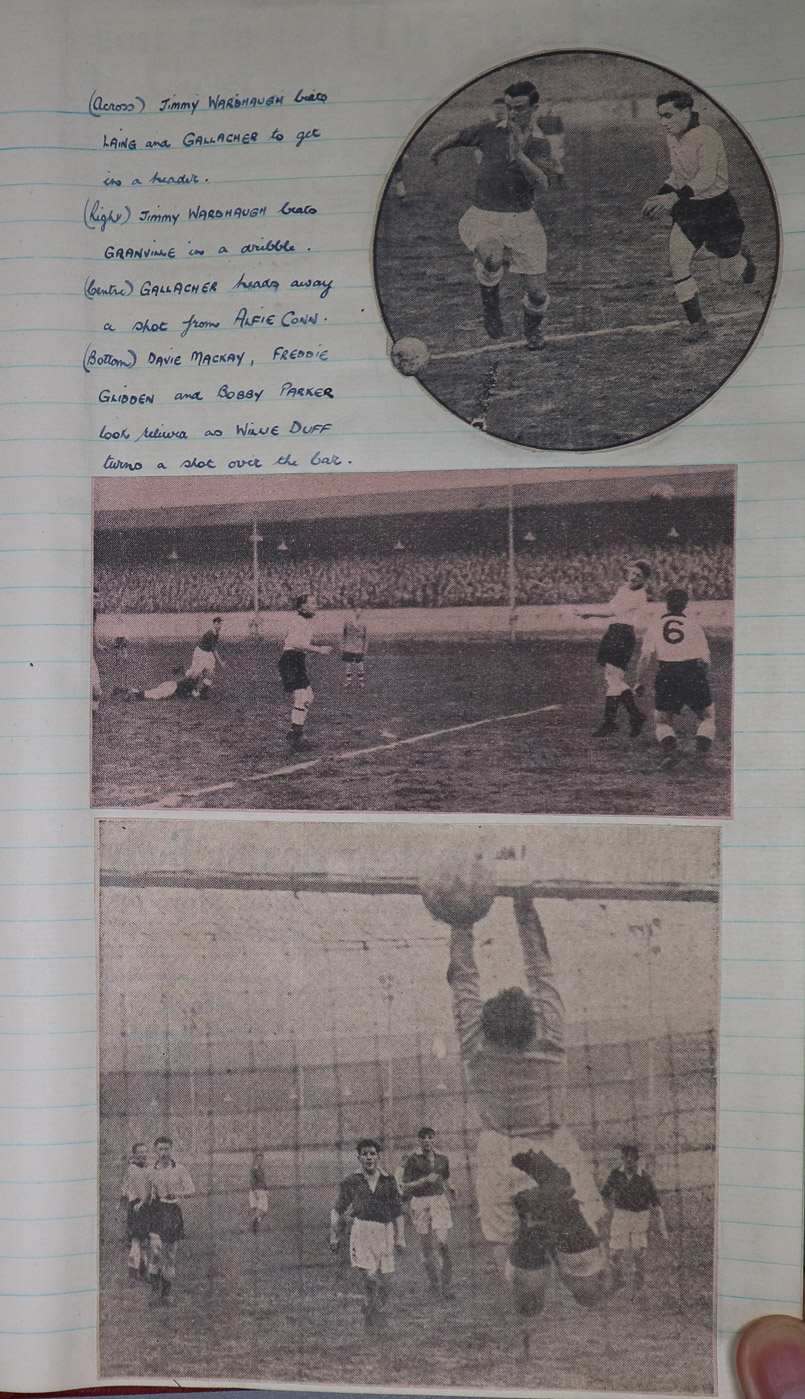 (Across) Jimmy WARDHAUGH beats
LAING and GALLACHER to get
in a header.
(Right) Jimmy WARDHAUGH beats
GRANVILLE in a dribble.
(Centre) GALLACHER heads away
a shot from ALFIE CONN.
(Bottom) DAVIE MACKAY, FREDDIE
GLIDDEN and BOBBY PARKER
look relieved as WILLIE DUFF
turns a shot over the bar.
6